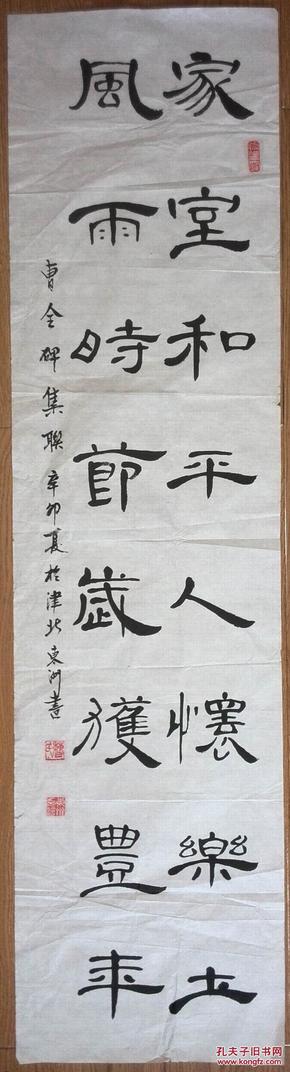 家室和平人懷樂土
風雨時節歲獲豐年
曹全碑集聯 辛卯夏於津北東河書
孔夫子旧书网